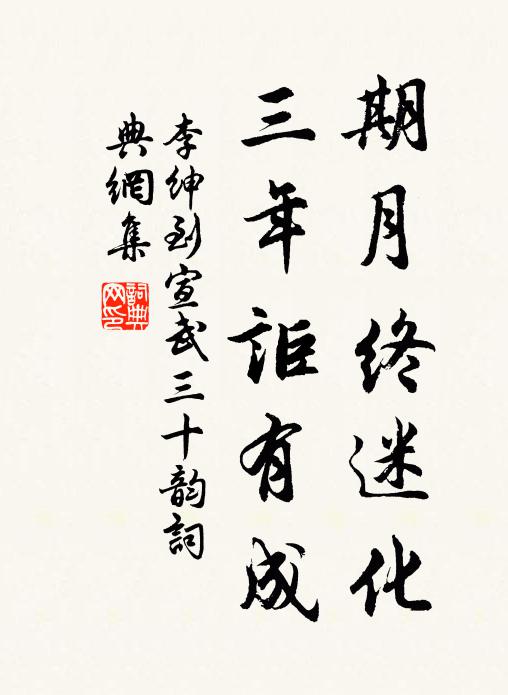 期月终迷化
三年詎有成
李绅到宣武三十韵詞
典網集
詞典网印